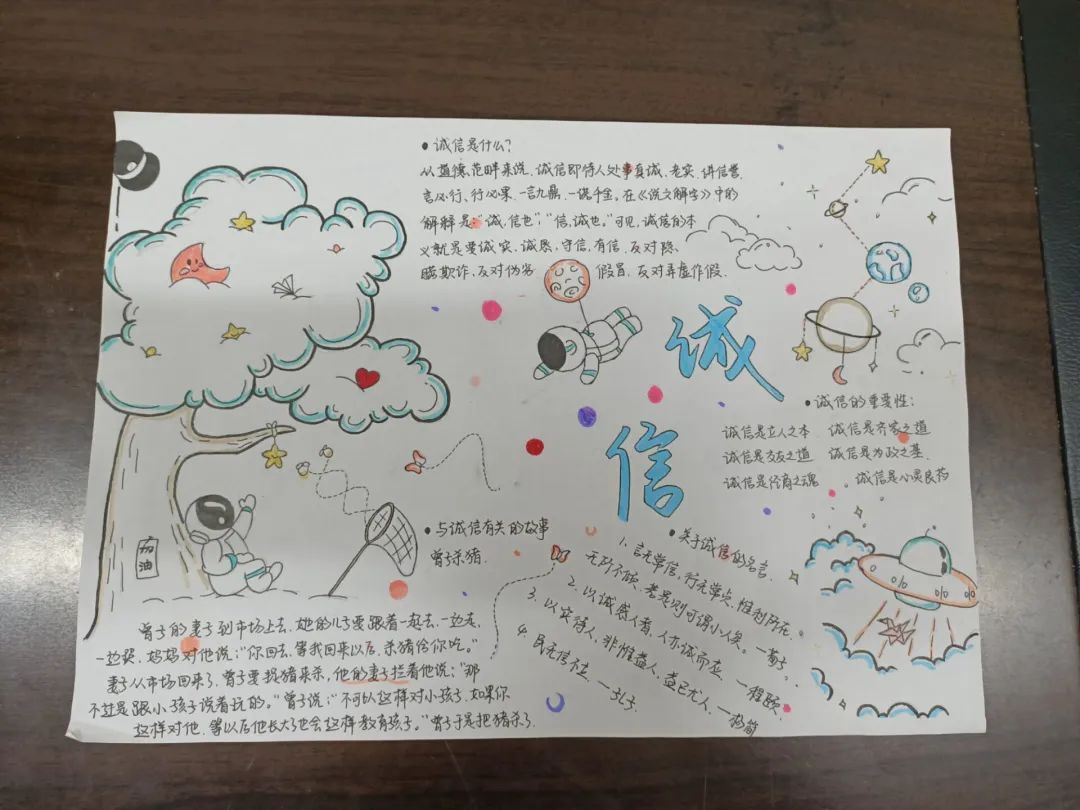 诚信是什么?
从道德范畴来说,诚信即待人处事真诚、老实、讲信誉,
言必行、行必果,一言九鼎,一诺千金,在《说文解字》中的
解释是:“诚,信也”,“信,诚也。”可见,诚信的本
义就是要诚实、诚恳、守信、有信,反对隐、
瞒欺诈、反对伪劣 假冒、反对弄虚作假、
诚
信
诚信的重要性:
诚信是立人之本 诚信是齐家之道
诚信是交友之道 诚信是为政之基
诚信是经商之魂 诚信是心灵良药
加油
与诚信有关的故事
曾子杀猪.
曾子的妻子到市场上去,她的儿子要跟着一起去,一边走,
一边哭.妈妈对他说:“你回去,等我回来以后,杀猪给你吃。”
妻子从市场回来了,曾子要捉猪来杀,他的妻子拦着他说:“那
不过是跟小孩子说着玩的。”曾子说:“不可以这样对小孩子,如果你
这样对他,等以后他长大了也会这样教育孩子。”曾子于是把猪杀了.
关于诚信的名言.
1. 言无常信,行无常贞,惟利所在,
无所不倾,若是则可谓小人矣。一荀子。
2. 以诚感人者,人亦诚而应. 一程颐、
3. 以实待人,非惟益人,益己尤大. 一杨简
4. 民无信不立. 一孔子.